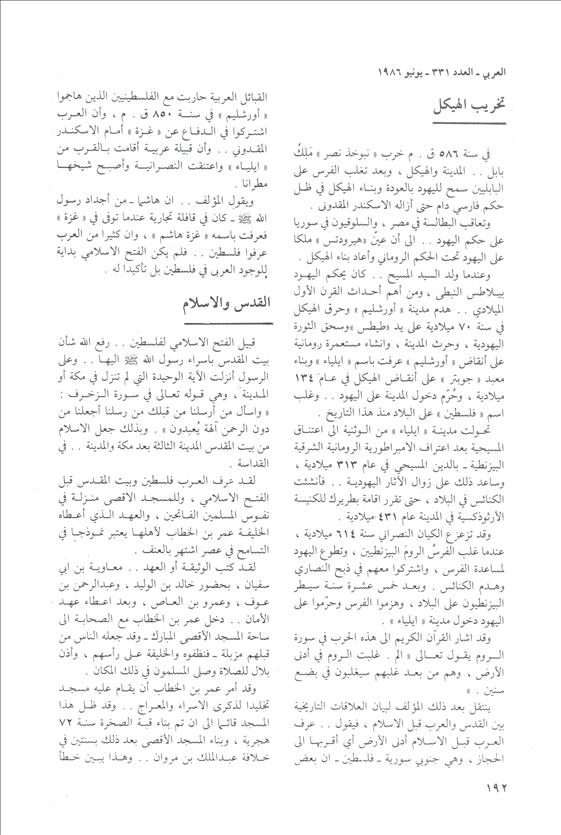 العربي ـ العدد ٣٣١ ـ يونيو ١٩٨٦
تخريب الهيكل
في سنة ٥٨٦ ق . م خرب « نبوخذ نصر » مَلِكُ
بابل . . المدينة والهيكل ، وبعد تغلب الفرس على
البابليين سمح لليهود بالعودة وبناء الهيكل في ظل
حكم فارسي دام حتى أزاله الاسكندر المقدونى .
وتعاقب البطالسة في مصر ، والسلوقيون في سوريا
على حكم اليهود . . الى أن عينَ «هيرودتس» ملكا
على اليهود تحت الحكم الروماني وأعاد بناء الهيكل .
وعندما ولد السيد المسيح . . كان يحكم اليهود
بيلاطس النبطى ، ومن أهم أحداث القرن الأول
الميلادي . . هدم مدينة « أورشليم » وحرق الهيكل
في سنة ٧٠ ميلادية على يد «طيطس» وسحق الثورة
اليهودية ، وحرث المدينة ، وانشاء مستعمرة رومانية
على أنقاض « أورشليم » عرفت باسم « ايلياء » وبناء
معبد « جوبتر » على أنقاض الهيكل في عام ١٣٤
ميلادية ، وحُرّم دخول المدينة على اليهود . . وغلب
اسم « فلسطين » على البلاد منذ هذا التاريخ .
تحولت مدينة « ايلياء » من الوثنية الى اعتناق
المسيحية بعد اعتراف الامبراطورية الرومانية الشرقية
البيزنطية ـ بالدين المسيحي في عام ٣١٣ ميلادية ،
وساعد ذلك على زوال الآثار اليهودية . . فأنشئت
الكنائس في البلاد ، حتى تقرر اقامة بطريرك للكنيسة
الأرثوذكسية في المدينة عام ٤٣١ ميلادية .
وقد تزعزع الكيان النصراني سنة ٦١٤ ميلادية ،
عندما غلب الفرسُ الرومَ البيزنطيين ، وتطوع اليهود
لمساعدة الفرس ، واشتركوا معهم في ذبح النصارى
وهدم الكنائس . وبعد خمس عشرة سنة سيطر
البيزنطيون على البلاد ، وهزموا الفرس وحرّموا على
اليهود دخول مدينة « ايلياء » .
وقد اشار القرآن الكريم الى هذه الحرب في سورة
الروم يقول تعالى « الم . غلبت الروم في أدنى
الأرض ، وهم من بعد غلبهم سيغلبون في بضع
سنين . »
ينتقل بعد ذلك المؤلف لبيان العلاقات التاريخية
بين القدس والعرب قبل الاسلام ، فيقول . . عرف
العرب قبل الاسلام أدنى الأرض أي أقربها الى
الحجاز ، وهي جنوبي سورية ـ فلسطين ـ ان بعض
القبائل العربية حاربت مع الفلسطينيين الذين هاجموا
« أورشليم » في سنة ٨٥٠ ق . م ، وأن العرب
اشتركوا في الدفاع عن « غزة » أمام الاسكندر
المقدوني . . وأن قبيلة عربية أقامت بالقرب من
« ايلياء » واعتنقت النصرانية وأصبح شيخها
مطرانا .
ويقول المؤلف . . ان هاشما ـ من أجداد رسول
الله ﷺ ـ كان في قافلة تجارية عندما توفى في « غزة »
فعرفت باسمه « غزة هاشم » ، وان كثيرا من العرب
عرفوا فلسطين . . فلم يكن الفتح الاسلامى بداية
للوجود العربى في فلسطين بل تأكيدا له .
القدس والاسلام
قبيل الفتح الاسلامي لفلسطين . . رفع الله شأن
بيت المقدس باسراء رسول الله ﷺ اليها . . وعلى
الرسول أنزلت الآية الوحيدة التي لم تنزل في مكة أو
المدينة ، وهي قوله تعالى في سورة الزخرف :
« واسأل من أرسلنا من قبلك من رسلنا أجعلنا من
دون الرحمن آلهة يُعبدون » . وبذلك جعل الاسلام
من بيت المقدس المدينة الثالثة بعد مكة والمدينة . . في
القداسة .
لقد عرف العرب فلسطين وبيت المقدس قبل
الفتح الاسلامي ، وللمسجد الاقصى منزلة في
نفوس المسلمين الفاتحين ، والعهد الذي أعطاه
الخليفة عمر بن الخطاب لأهلها يعتبر نموذجا في
التسامح في عصر اشتهر بالعنف .
لقد كتب الوثيقة أو العهد . . معاوية بن ابي
سفيان ، بحضور خالد بن الوليد ، وعبدالرحمن بن
عوف ، وعمرو بن العاص ، وبعد اعطاء عهد
الأمان . . دخل عمر بن الخطاب مع الصحابة الى
ساحة المسجد الأقصى المبارك ـ وقد جعله الناس من
قبلهم مزبلة ـ فنظفوه والخليفة على رأسهم ، وأذن
بلال للصلاة وصلى المسلمون في ذلك المكان .
وقد أمر عمر بن الخطاب أن يقام عليه مسجد
تخليدا لذكرى الاسراء والمعراج . . وقد ظل هذا
المسجد قائما الى ان تم بناء قبة الصخرة سنة ٧٢
هجرية ، وبناء المسجد الأقصى بعد ذلك بسنتين في
خلافة عبدالملك بن مروان . . وهذا يبين خطأ
١٩٢